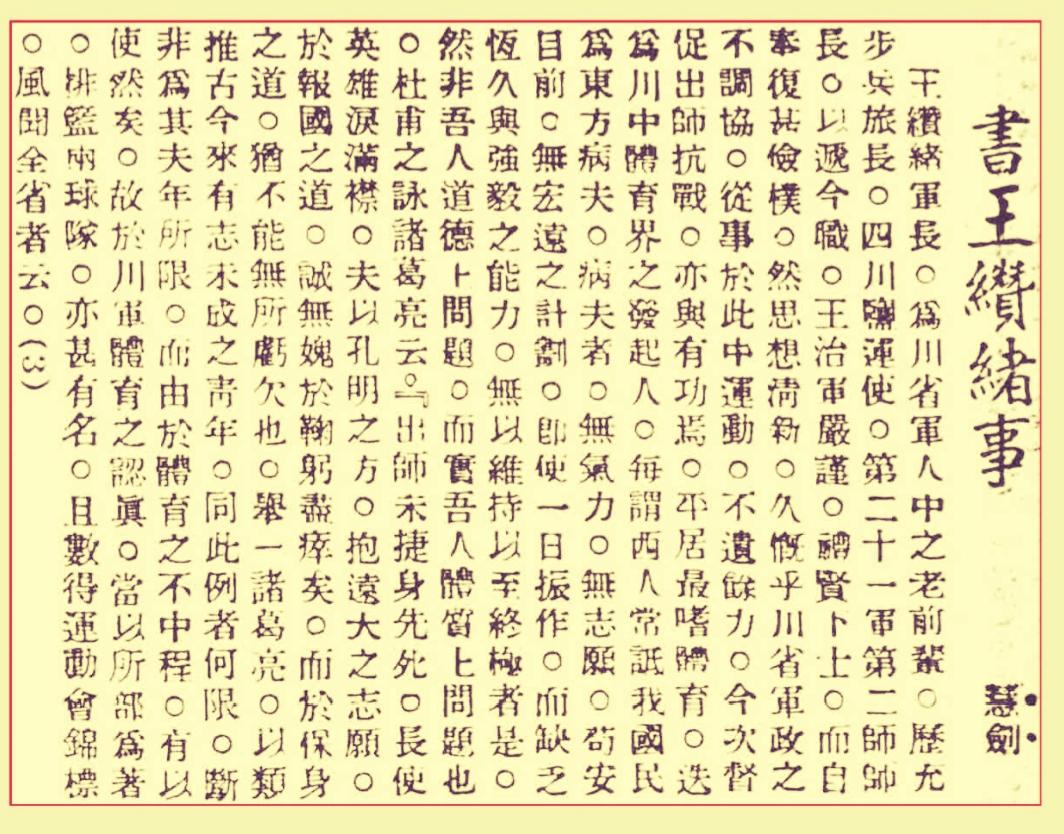 書王纘緒事
慧劍
王纘緒軍長○爲川省軍人中之老前輩○歷允
步兵旅長○四川鹽運使○第二十一軍第二師師
長○以遞今職○王治軍嚴謹○禮賢下士○而自
奉復甚儉樸○然思想淸新○久慨乎川省軍政之
不調協○從事於此中運動○不遺餘力○今次督
促出師抗戰○亦與有功焉○平居最嗜體育○迭
爲川中體育界之發起人○每謂西人常詆我國民
爲東方病夫○病夫者○無氣力○無志願○苟安
目前○無宏遠之計劃○卽使一日振作○而缺乏
恆久與強毅之能力○無以維持以至終極者是○
然非吾人道德上問題○而實吾人體質上問題也
○杜甫之詠諸葛亮云○『出師未捷身先死○長使
英雄淚滿襟○夫以孔明之方○抱遠大之志願○
於報國之道○誠無媿於鞠躬盡瘁矣○而於保身
之道○猶不能無所虧欠也○舉一諸葛亮○以類
推古今來有志未成之靑年○同此例者何限○斷
非爲其夫年所限○而由於體育之不中程○有以
使然矣○故於川軍體育之認眞○當以所部爲著
○排籃兩球隊○亦甚有名○且數得運動會錦標
○風聞全省者云○(3)